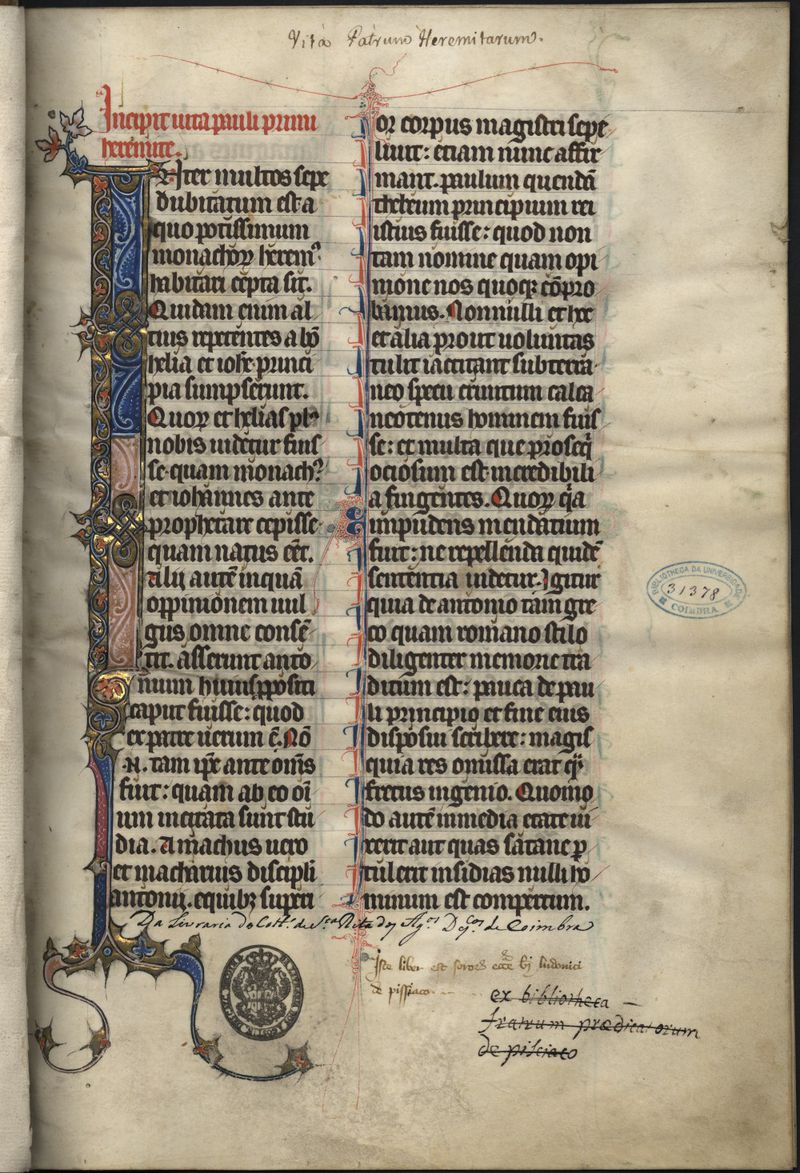 Vita Patrum Heremitarum.
Incipit uita pauli primi
heremite.
Inter multos sepe
dubitatum est a
quo potissimum
monachoꝝ herem⁹
habitari cepta sit.
Quidam enim al
tius repetentes a bō
helia et iohe princi
pia sumpserunt.
Quoꝝ et helias plꝰ
nobis uidetur fuis
se quam monachꝰ
et iohannes ante
prophetare cepisse
quam natus eēt.
Alij autē in quā
oppinionem uul
gus omne consē
tit. asserunt anto
nium huius ꝓpositi
caput fuisse: quod
ex parte uerum ē. Nō
.N. tam ip̄e ante om̄s
fuit: quam ab eo oī
um incitata sunt stu
dia. Amachus uero
et macharius discipli
antonij. e quibꝫ superi
or corpus magistri sepe
liuit: etiam nunc affir
mant. paulum quendā
thebeum principium rei
istius fuisse: quod non
tam nomine quam opi
mone nos quoqꝫ cōpro
bamus. Nonnulli et hec
et alia prout uoluntas
tulit iactitant subterra
neo specu crinitum calca
neotenus hominem fuis
se: et multa que prosequi
ociosum est incredibili
a fingentes. Quoꝝ q̄a
impudens mendatium
fuit: ne repellenda quidē
sententia uidetur. Igitur
quia de antonio tam gre
co quam romano stilo
diligenter memorie tra
ditum est: pauca de pau
li principio et fine eius
disposui scribere: magis
quia res omissa erat qꝫ
fretus ingenio. Quomo
do autē in media etate ui
xerit aut quas sathane p
tulerit insidias nulli ho
minum est compertum.
Da Livraria do Coll.º de S.ta Rita dos Ag.os D.cos de Coimbra
Iste liber est soro4 ecclē bī ludouici
de pissiaco
ex bibliotheca
fratrum prædicatorum
de pisciaco
BIBLIOTHECA DA UNIVERSIDADE
31378
COIMBRA